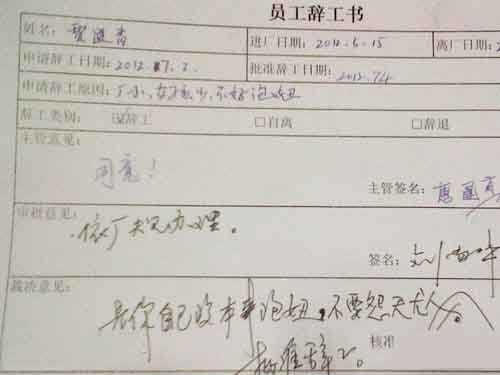 员工辞工书
姓名: 进厂日期: 2012.5.15 离厂日期:
申请辞工日期: 2012.7.2. 批准辞工日期: 2012.7.4
申请辞工原因: 厂小,女孩子少,不好泡妞
辞工类别: 辞工 □自离 □辞退
主管意见:
同意!
主管签名:
审核意见:
依厂规办理。
签名: 刘
裁决意见:
是你自己没本事泡妞,不要怨天尤人。
批准辞工。 核准